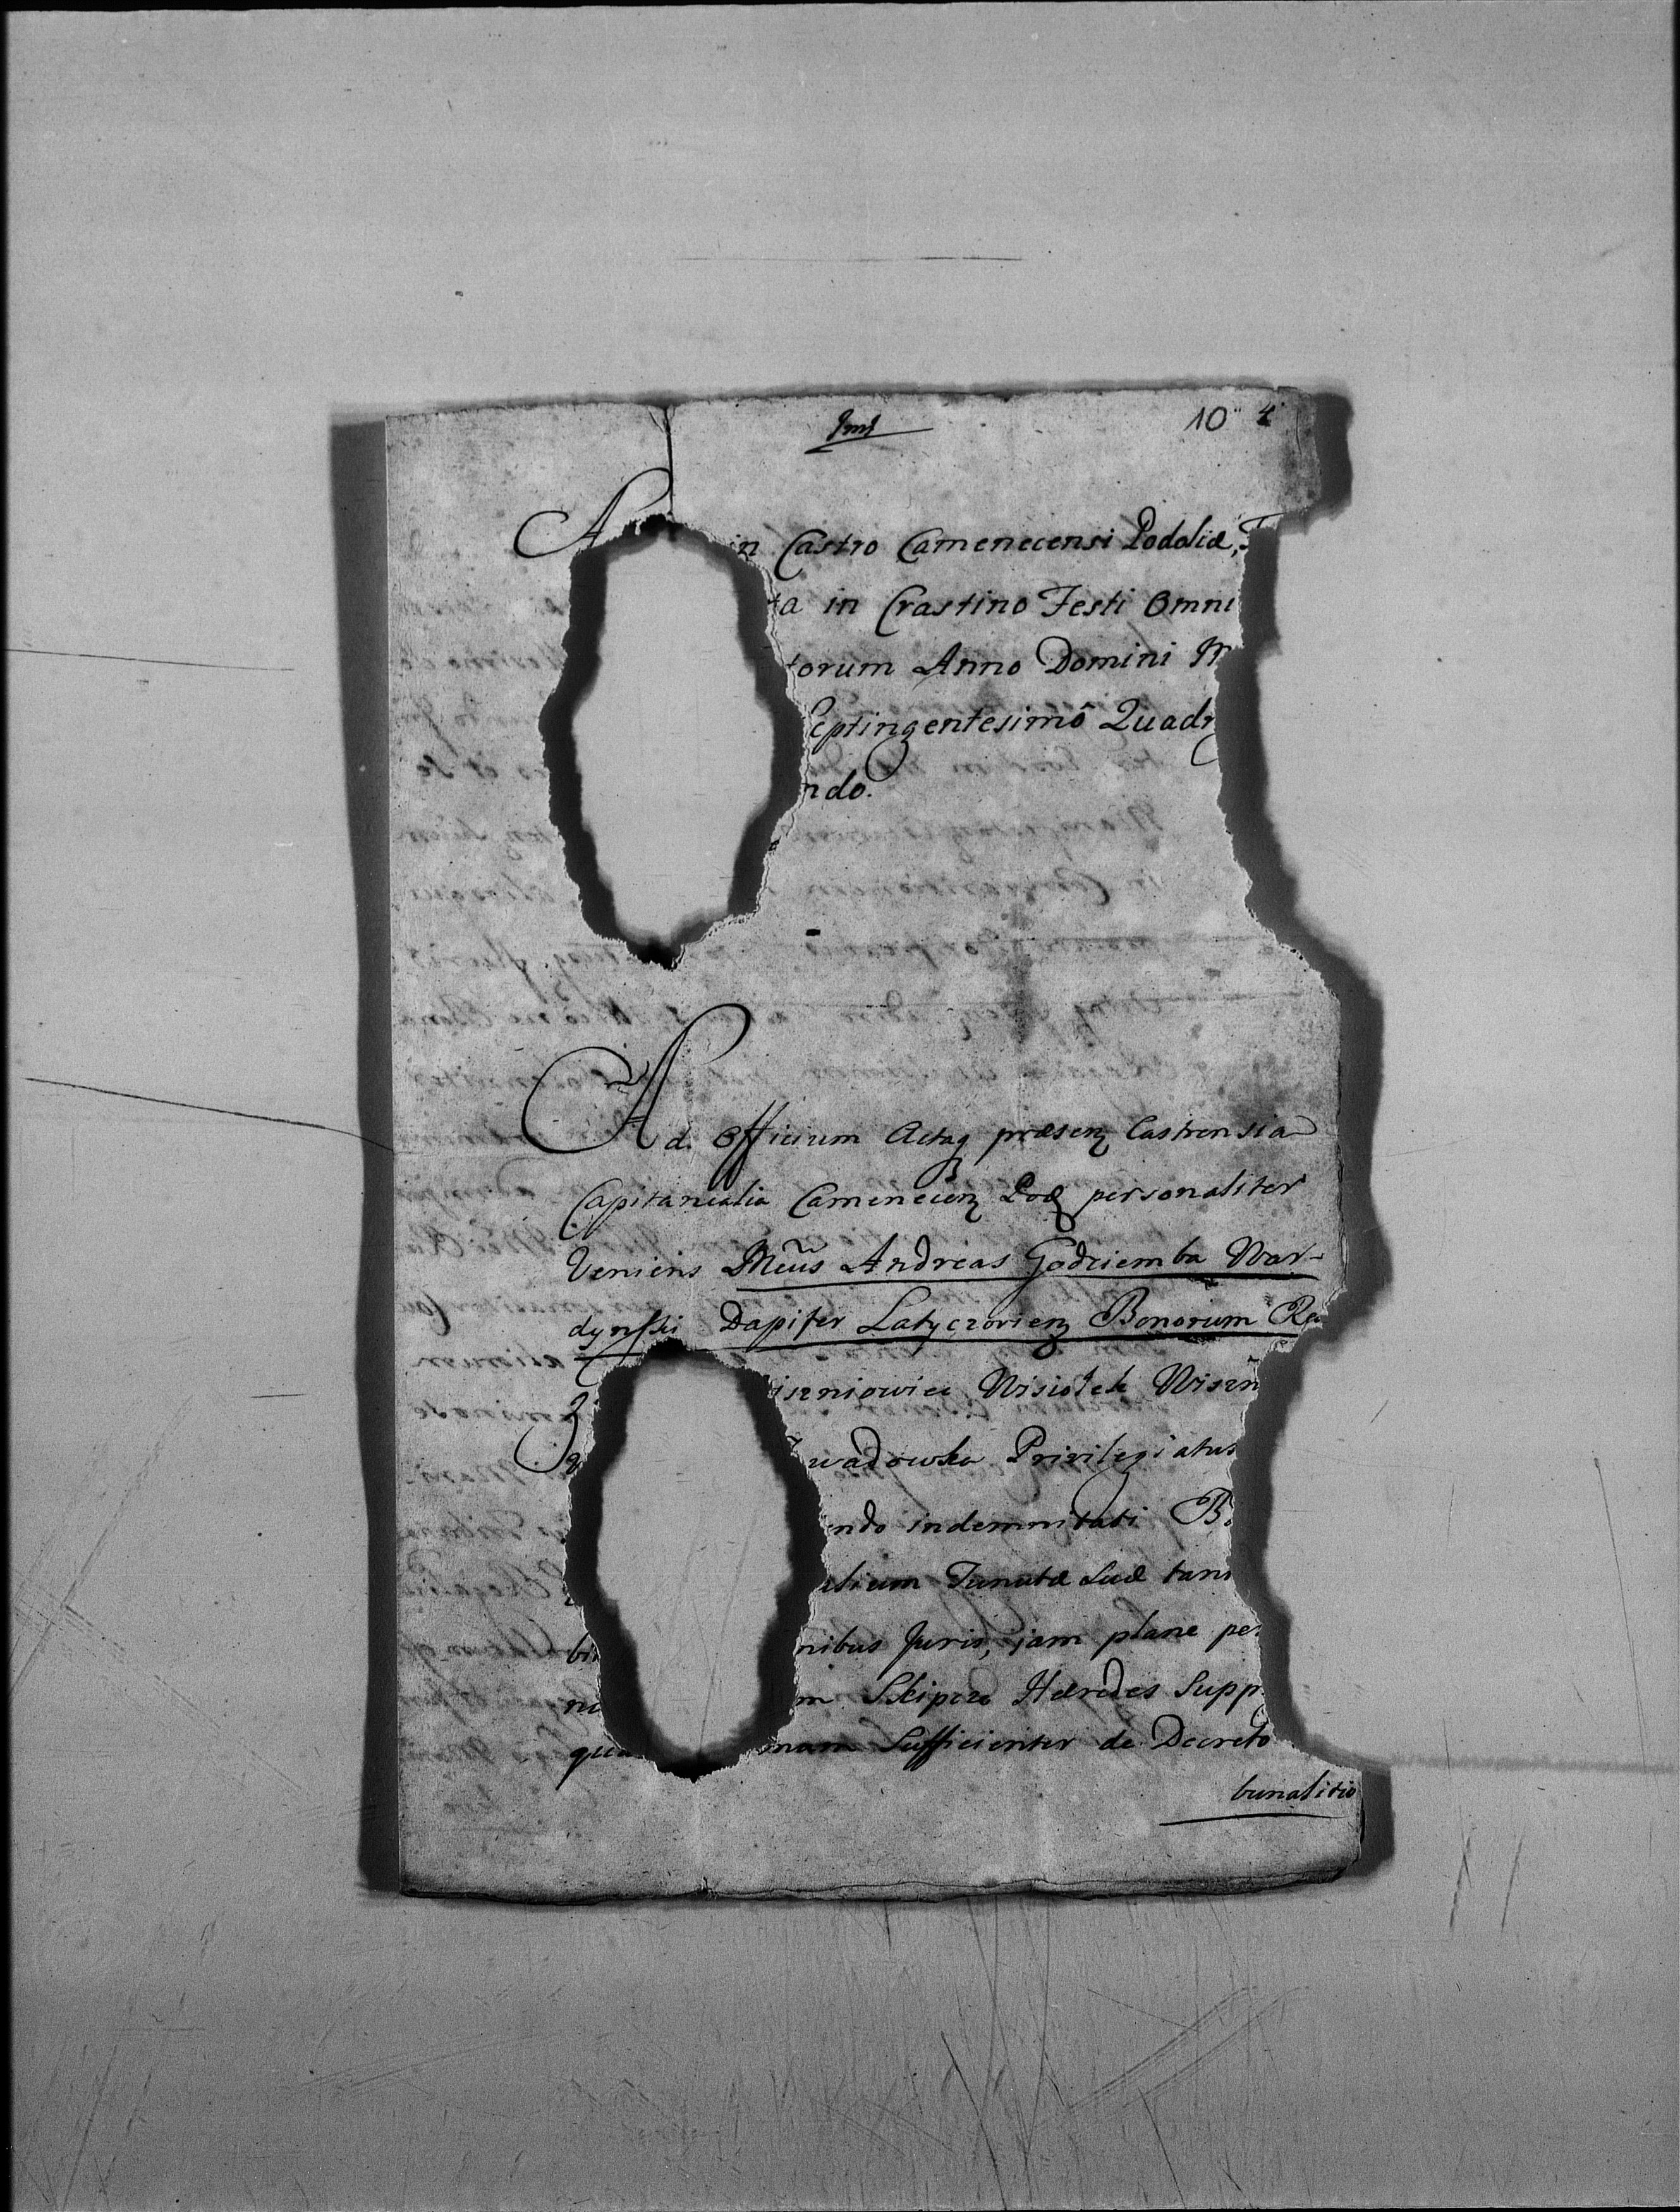 10 4
in Castro Camenecensi Podoliæ,
in Crastino Festi Omni
torum Anno Domini M
eptingentesimô Quadr
ndo.
Ad Officium Actaq præsenz Castrensia
Capitanealia Camenecienz Pod personaliter
Veniens Mcus Andreas Godziemba War-
dynski Dapifer Latyczovienz Bonorum Re
iszniowiec Wisiołek Wiszn
wadowka Privilegiatus
ndo indemnitati Bo
alium Tenutæ Suæ tam
nibus Juris, jam plane per
m Skipeza Hæredes Supp
qua mam Sufficienter de Decreto
bunalitio